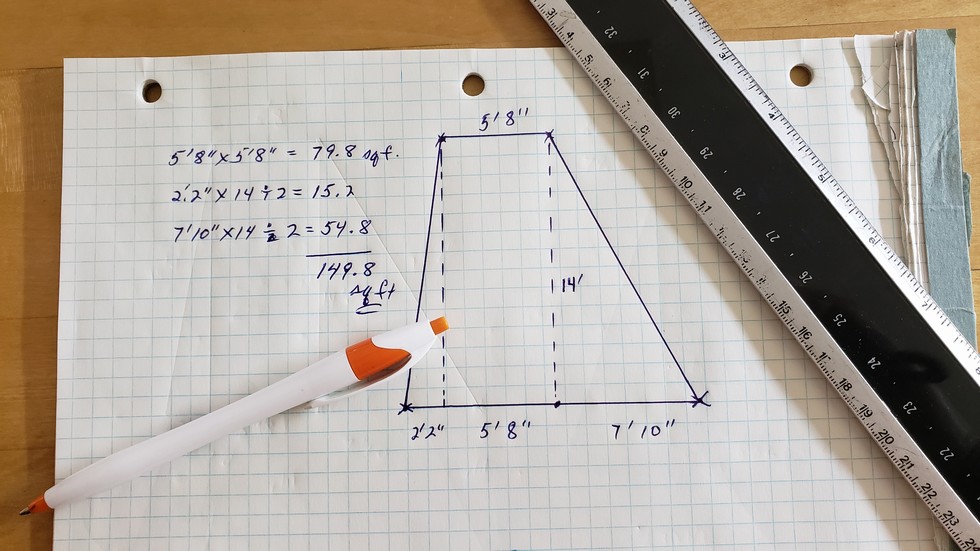 5'8"
5'8" × 5'8" = 79.8 sq ft.
2'.2" × 14 ÷ 2 = 15.2
7'10" × 14 ÷ 2 = 54.8
149.8
sq ft
14'
2'2" 5'8" 7'10"
3 4 5 6 7 8 9 10 11 15 16 17 18 19 20 21 22 23
32 31 30 29 28 27 26 25 24 23 22
3 4 5